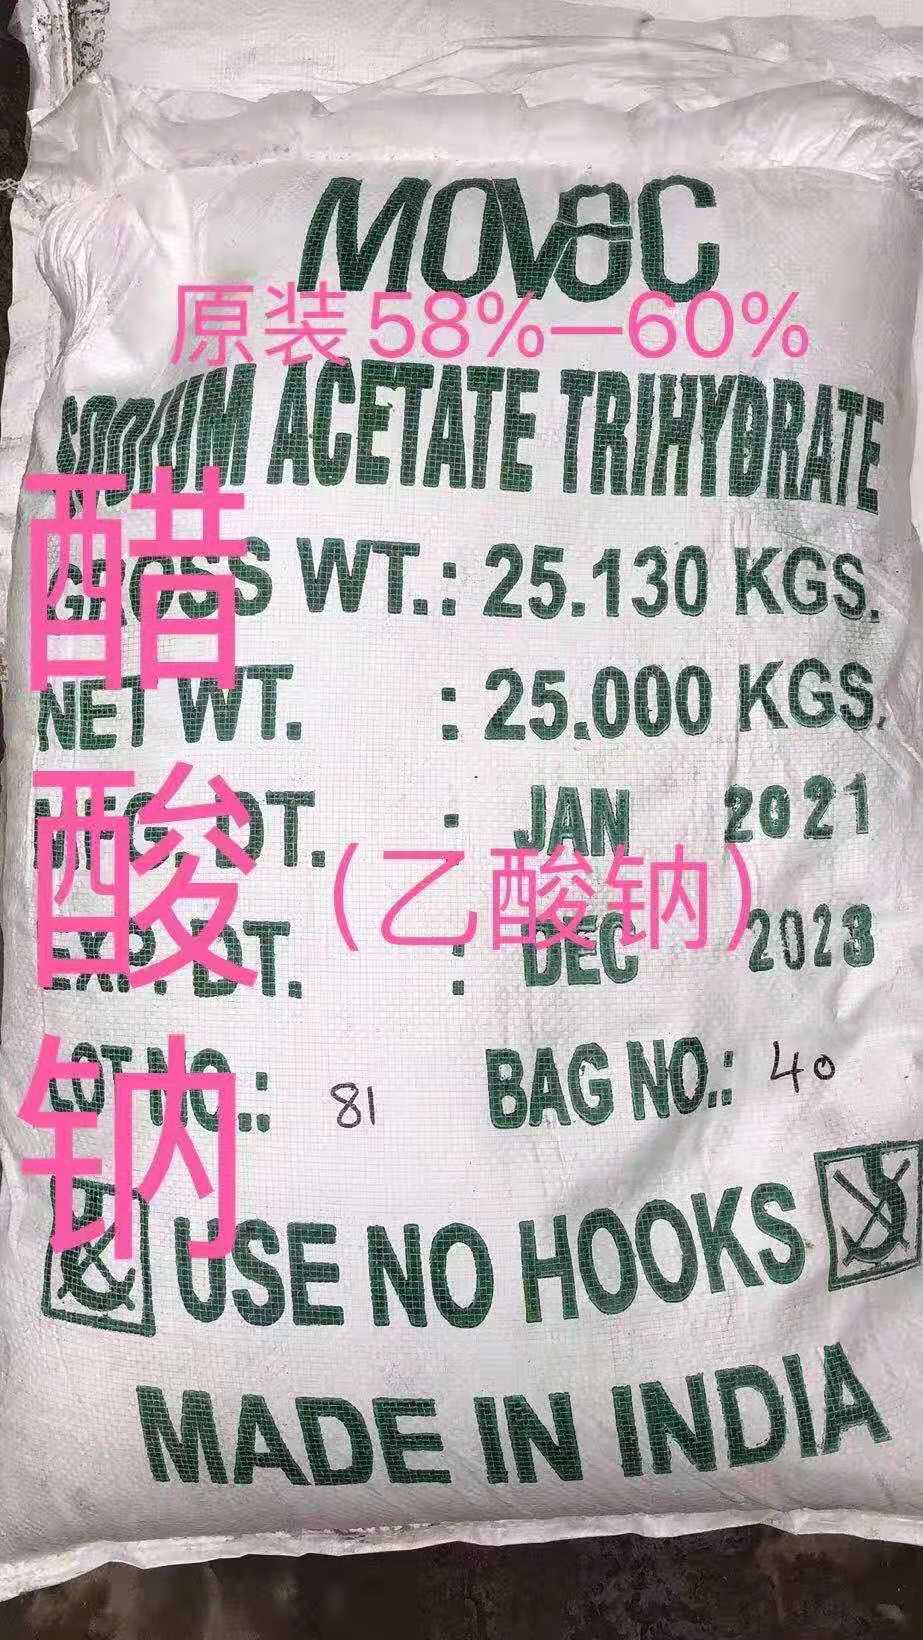 MOVaC
原装58%—60%
SODIUM ACETATE TRIHYDRATE
醋酸钠
GROSS WT.: 25.130 KGS.
NET WT. : 25.000 KGS.
MFG. DT. : JAN 2021
（乙酸钠）
EXP. DT. : DEC 2023
LOT NO.: 81 BAG NO.: 40
USE NO HOOKS
MADE IN INDIA